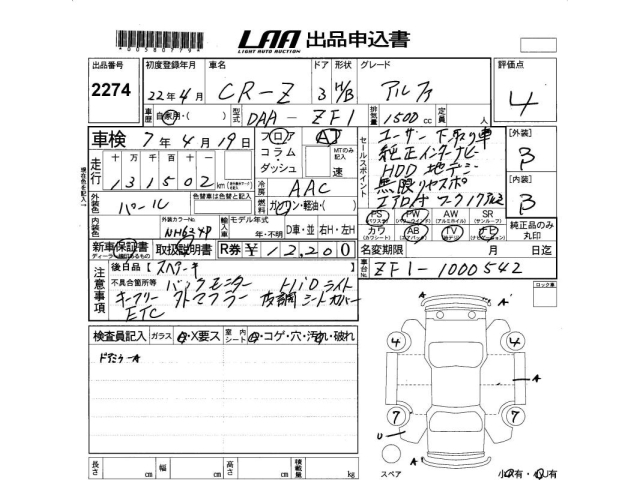 *005807794*
LAA 出品申込書
LIGHT AUTO AUCTION
出品番号 初度登録年月 車名 ドア 形状 グレード 評価点
2274 22年4月 CR-Z 3 H/B アルファ 4
車歴 自家用・( ) 型式 DAA-ZF1 排気量 1500cc 定員 人
車検 7年4月19日 フロア コラム・ダッシュ AT MTのみ記入 速
セールスポイント ユーザー下取り車
純正インターナビ
HDD 地デジ
無限リヤスポ
[外装] B
[内装] B
走行 十万千百十 131502 km
冷房 AAC
外装色 パール 色替車は色替と記入 燃料 ガソリン・軽油・( )
PS PW AW SR 純正品のみ丸印
カワ AB TV ナビ
内装色 外装カラーNo. NH624P 輸入車 モデル年式 年・不明 D車・並 右H・左H
新車保証書 取扱説明書 R券 ¥12,200
名変期限 月 日迄
車台No. ZF1-1000542
注意事項 後日品【スペアキー
不具合箇所等 バックモニター HID ライト
キーフリー シートカバー
ETC
ロック車
検査員記入 ガラス A・X要ス 室内シート コゲ・穴・汚れ・破れ
A A
4 4
A
7 7
U
A
長さ cm 幅 cm 高さ cm 積載量 kg
スペア